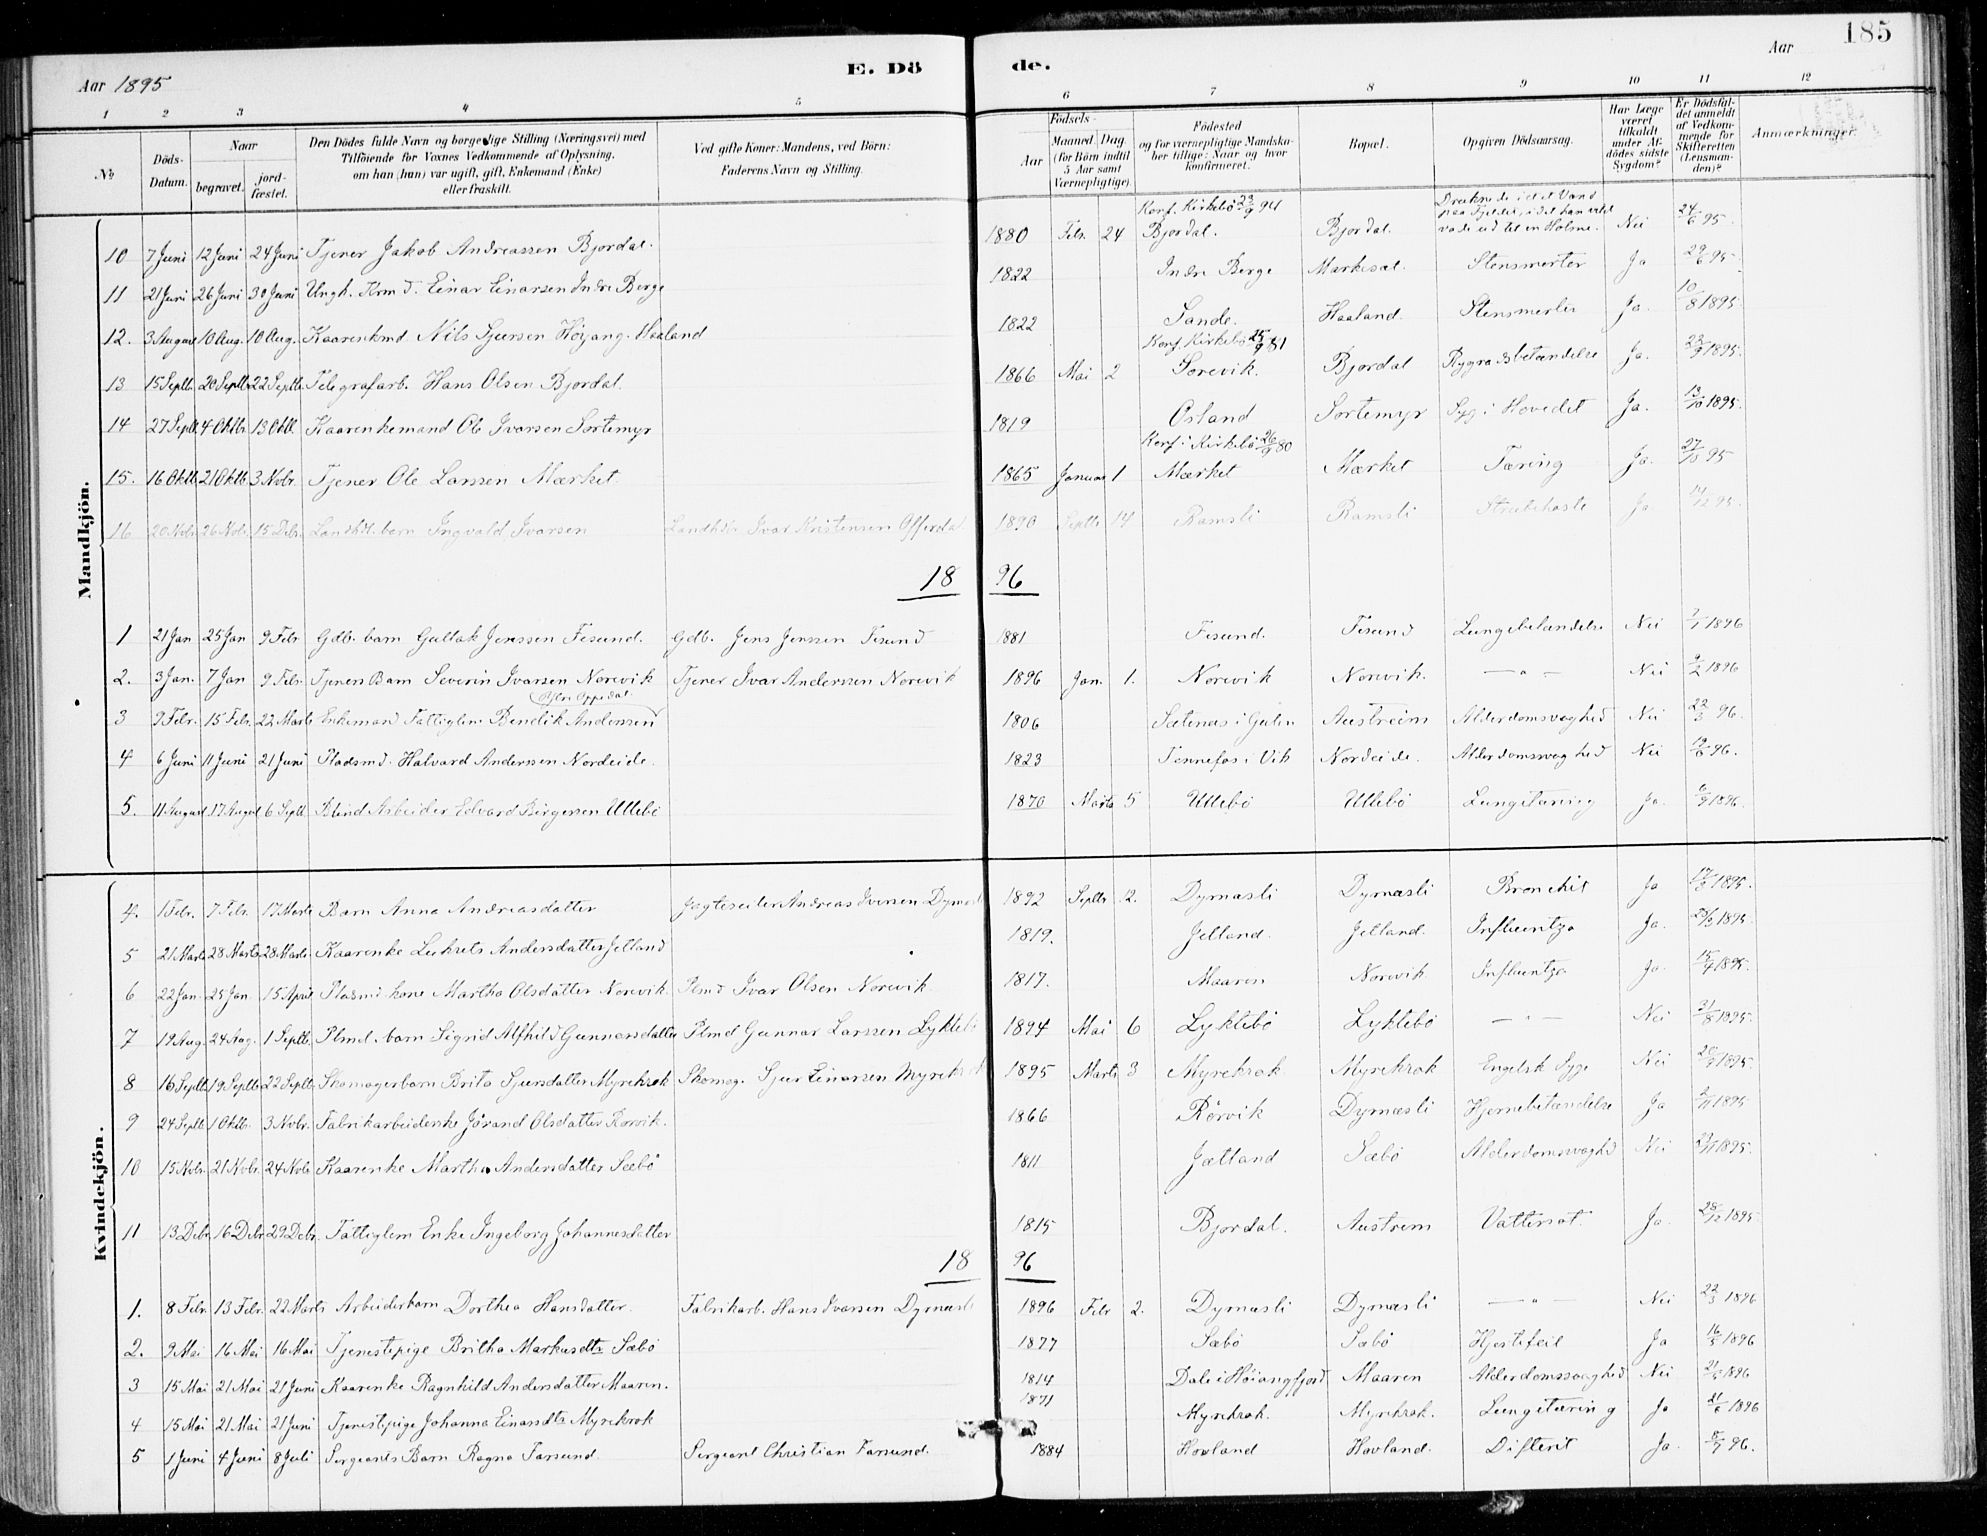 185
Aar 1895
E. Dö de.
Aar
1 2 3 4 5 6 7 8 9 10 11 12
№
Döds-Datum.
Naar
begravet.
jord-fæstet.
Den Dödes fulde Navn og borgerlige Stilling (Næringsvei) med
Tilföiende for Voxnes Vedkommende af Oplysning,
om han (hun) var ugift, gift, Enkemand (Enke)
eller fraskilt.
Ved gifte Koner: Mandens, ved Börn:
Faderens Navn og Stilling.
Födsels-
Aar
Maaned. Dag.
(for Börn indtil
5 Aar samt
Værnepligtige).
Födested
og for værnepligtige Mandska-
ber tillige: Naar og hvor
konfirmeret.
Bopæl.
Opgiven Dödsaarsag.
Har Læge
været
tilkaldt
under Af-
dödes sidste
Sygdom?
Er Dödsfal-
det anmeldt
af Vedkom-
mende for
Skifteretten
(Lensman-
den)?
Anmærkninger.
Mandkjön.
Konf. Kirkebö 23/9 94
10 7 Juni 12 Juni 24 Juni Tjener Jakob Andreassen Bjordal. 1880 Febr. 24 Bjordal. Bjordal. Nei 24/6 95.
11 21 Juni 26 Juni 30 Juni Ungk. Krmd. Einar Einarsen Indre Berge 1822 Indre Berge Stensmerter Ja 29/6 95.
12. 3 August 10 Aug. 10 Aug. Kaarenkmd Nils Sjursen Höyang. Haaland 1822 Sande. Haaland. Stensmerter Ja. 10/8 1895.
Konf. Kirkebö 25/9 81
13 15 Septb. 20 Septb. 22 Septb. Telegrafarb. Hans Olsen Bjordal. 1866 Mai 2 Sorevik. Bjordal Rygradsbetændelse Ja. 23/9 1895.
14 27 Septb. 4 Oktbr. 13 Oktb. Kaarenkemand Ole Ivarsen Sortemyr 1819 Osland Sortemyr Syg i Hovedet Ja. 13/10 1895.
Konf. i Kirkebö 26/9 80
15. 16 Oktb. 21 Oktb. 3 Nobr. Tjener Ole Larssen Mærket. 1865 Januar 1 Mærket Mærket Tæring Ja. 27/10 95
16 20 Nobr. 26 Nobr. 15 Debr. Landhdl. barn Ingvald Ivarsen Landhdl. Ivar Kristensen Offerdal 1890 Septbr 14 Ramsli Ramsli Strubehoste Ja 14/12 95.
18 96
1 21 Jan 25 Jan 9 Febr Gdb. barn Gullak Jenssen Tesund. Gdb. Jens Jenssen Tesund 1881 Tesund. Tesund Lungebetændelse Nei 1896
2. 3 Jan. 7 Jan 9 Febr. Tjeners Barn Severin Ivarsen Norevik Tjener Ivar Anderssen Norevik 1896 Jan. 1. Norevik Norevik. — " — Nei 9/2 1896
3 9 Febr. 15 Febr. 22 Marts Enkemand Fattiglem Bendik Anderssen 1806 Austreim Alderdomsvaghed Nei 22/3 96.
4 6 Juni 11 Juni 21 Juni Pladsmd. Halvard Anderssen Nordeide. 1823 Tennefos i Vik Nordeide. Alderdomsvaghed Nei 96.
5. 11 August 17 August 6 Septb. Blind Arbeider Edvard Börgessen Ullebö 1870 Marts 5 Ullebö Ullebö Lungetæring Ja. 6/9 1896.
Kvindekjön.
4. 1 Febr. 7 Febr. 17 Marts Barn Anna Andreasdatter Jagteseiler Andreas Iversen Dymesli 1892 Septbr 12. Dymæsli Dymæsli Bronchit Ja 17/3 1895.
5 21 Marts 28 Marts 28 Marts Kaarenke Lukrets Andersdatter Jetland 1819. Jetland. Jetland. Influentza Ja. 1895.
6 22 Jan. 25 Jan. 15 April Plasmkone Martha Olsdatter Norevik. Plmd Ivar Olsen Norevik 1817. Maaren Norevik Influentza Ja. 15/4 1895.
7 19 Aug. 24 Aug. 1 Septb. Plmd. barn Sigrid Alfhild Gunnarsdatter Plmd Gunnar Larssen Lyktebö 1894 Mai 6 Lyktebö Lyktebö — " — Nei 31/8 1895.
8 16 Septb. 19 Septb. 22 Septb. Skomagerbarn Brita Sjursdatter Myrekrok Skomag. Sjur Einarssen Myrekrok 1895 Marts 3 Myrekrok Myrekrok Engelsk Syge Nei 1895.
9 24 Septb. 1 Oktb. 3 Nobr. Fabrikarbeiderske Jörand Olsdatter Rörvik. 1866 Rörvik Dymæsli Hjernebetændelse Ja 1895
10 15 Nobr. 21 Nobr. 24 Nobr Kaarenke Martha Andersdatter Sæbö 1811 Jætland Sæbö Alderdomsvaghd Nei 1895.
11 13 Debr. 16 Debr. 29 Debr. Fattiglem Enke Ingeborg Johannesdatter 1815 Bjordal. Austrem Vattersot. Ja. 28/12 1895.
18 96
1. 8 Febr. 13 Febr. 22 Marts Arbeiderbarn Dorthea Hansdatter. Fabrikarb. Hans Ivarsen Dymæsli 1896 Febr 2. Dymæsli Dymæsli — " — Nei 22/3 1896
2. 9 Mai 16 Mai 16 Mai Tjenestepige Britha Markusdtr Sæbö 1877 Sæbö Sæbö Hjertefeil Ja 16/5 1896
3 15 Mai 21 Mai 21 Juni Kaarenke Ragnhild Andersdatter Maaren. 1814 Dale i Höiangfjord Maaren Alderdomssvaghed Nei 21/6 1896
4 15 Mai 21 Mai 21 Juni Tjenestepige Johanna Einarsdtr Myrekrok 1871 Myrekrok. Myrekrok. Lungetæring Ja 21/6 1896
5 1 Juni 4 Juni 8 Juli Sergeants Barn Ragna Farsund. Sergeant Christian Farsund. 1884 Hovland Hovland. Difterit Ja. 96.